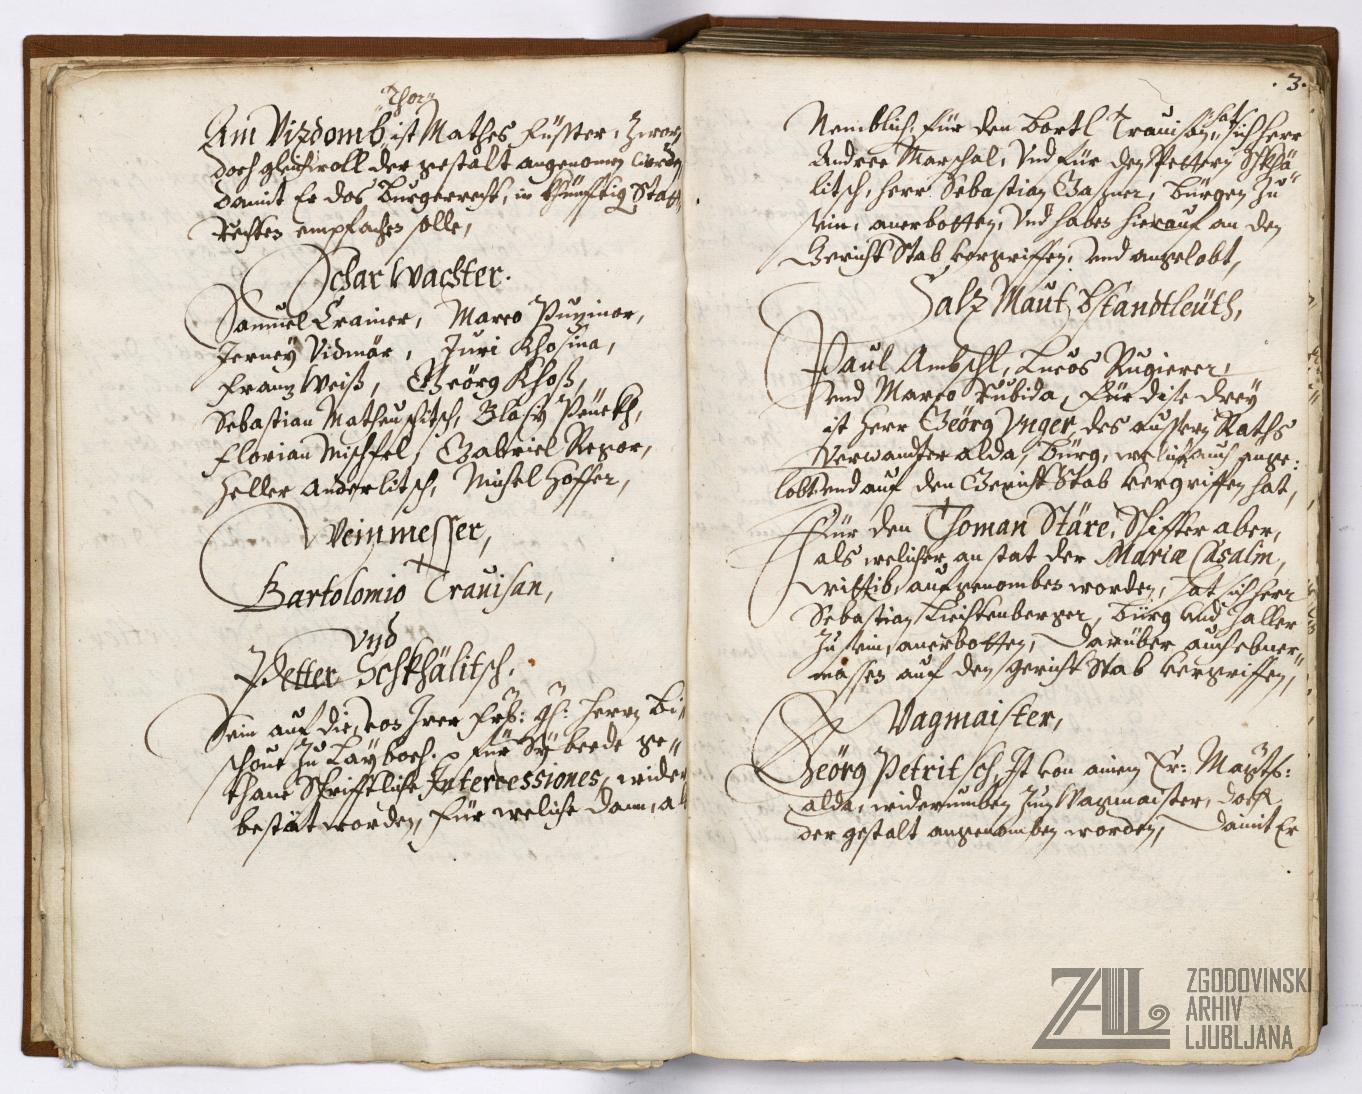 Thor„
Am Vizdomb, ist Mathes Füsster, Zwar,
doch gleichwoll der gestalt angenomen word„
damit Er das Burgerrecht, in khünfftig Statt
Rechten empfachen solle,
Schar Wachter.
Samuel Crainer, Marco
Jerney Vidmär, Juri Khosina,
Franz Weiß, Geörg Khoß,
Sebastian Matheuschitsch, Blasy
Florian Mischfel, Gabriel Repar,
Heller Anderlitsch, Michel Hoffer,
Weinmesser,
Bartolomio Trauisan,
vnd
Petter Schkhälitsch,
Sein auf die, von Irer Frb: G: Herrn Bi„
schoue zu Laybach. p für Sy beede ge„
thane Schrifftliche Intercessiones, wider
bestät worden, Für welche dann, al
. 3 .
Nemblich, Für den Bartl Trauisan, hat sich Herr
Andree Marschal, Vnd für den Pettern Schkhä„
litsch, Herr Sebastian, Bürgen zu
sein, anerbotten, Vnd haben hierauf an den
Gericht Stab kergriffen, vnd angelobt,
Salz Maut, Bstandtleüth,
Paul Ambschl, Lucas Rugierer,
vnd Marco Rubida, Für dise drey
ist Herr Geörg Vnger, des aussern Raths
Verwandter alda, Bürg, welicher auch ange:
lobt vnd auf den Gericht Stab kergriffen hat,
Für den Thoman Stäre, Schiffter aber,
als welicher an stat der Mariæ Casalin,
wittib, aufgenomben worden, hat sich Herr
Sebastian Liechtenberger, Bürg vnd Zaller
zu sein, anerbotten, darüber auch ebner„
massen auf den Gericht Stab kergriffen,
Wagmaister,
Geörg Petritsch, Ist von ainem Er: Magts:
alda, widerumben zum Wagmaister, doch
der gestalt angenomben worden, damit Er
ZAL ZGODOVINSKI
ARHIV
LJUBLJANA